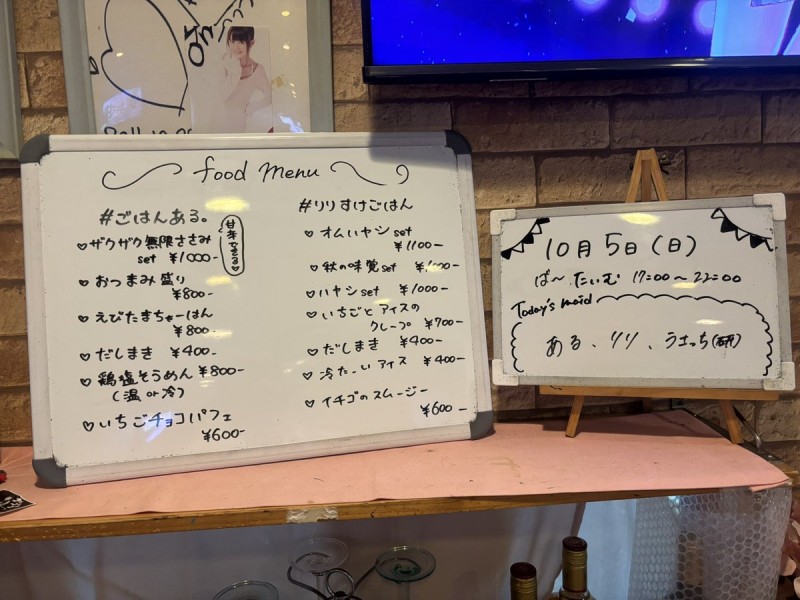 food menu
#ごはんある。
♡ ザクザク無限ささみ
set ¥1000-
♡ おつまみ盛り
¥800-
♡ えびたまちゃーはん
¥800-
♡ だしまき ¥400-
♡ 鶏塩そうめん ¥800-
(温or冷)
♡ いちごチョコパフェ
¥600-
#りりすけごはん
♡ オムハヤシ set
¥1100-
♡ 秋の味覚 set
♡ ハヤシ set ¥1000-
♡ いちごとアイスの
クレープ ¥700-
♡ だしまき ¥400-
♡ 冷たーいアイス ¥400-
♡ イチゴのスムージー
¥600-
10月5日(日)
ば〜たいむ 17:00〜22:00
Today's maid
ある、リリ、うさっち(研)